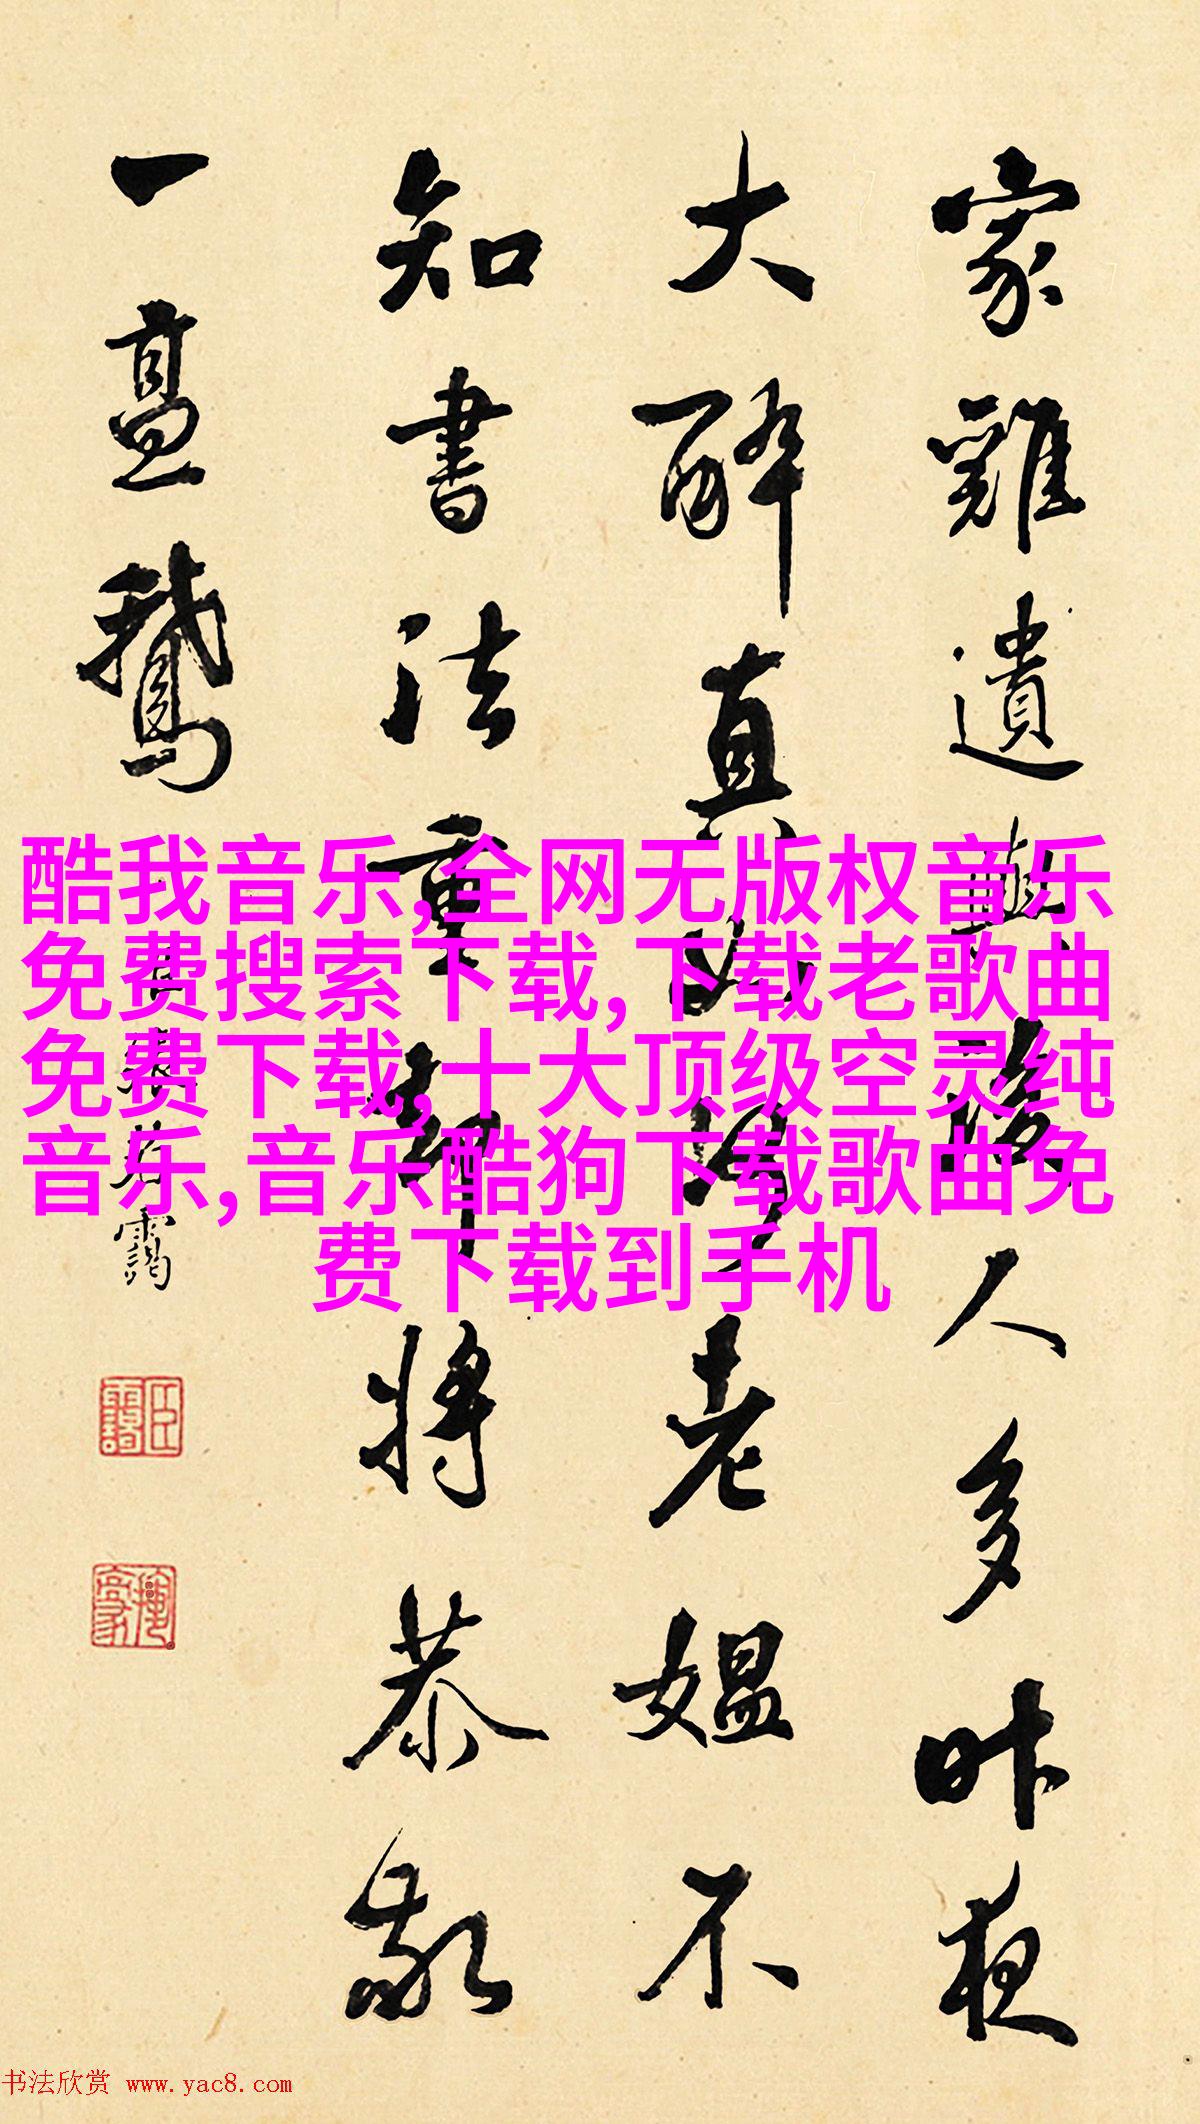 家雞遺
人多昨夜
大醉真
老媪不
知書法重
將恭敬
一盙鵝
酷我音乐,全网无版权音乐
免费搜索下载,下载老歌曲
免费下载,十大顶级空灵纯
音乐,音乐酷狗下载歌曲免
费下载到手机
书法欣赏 www.yac8.com